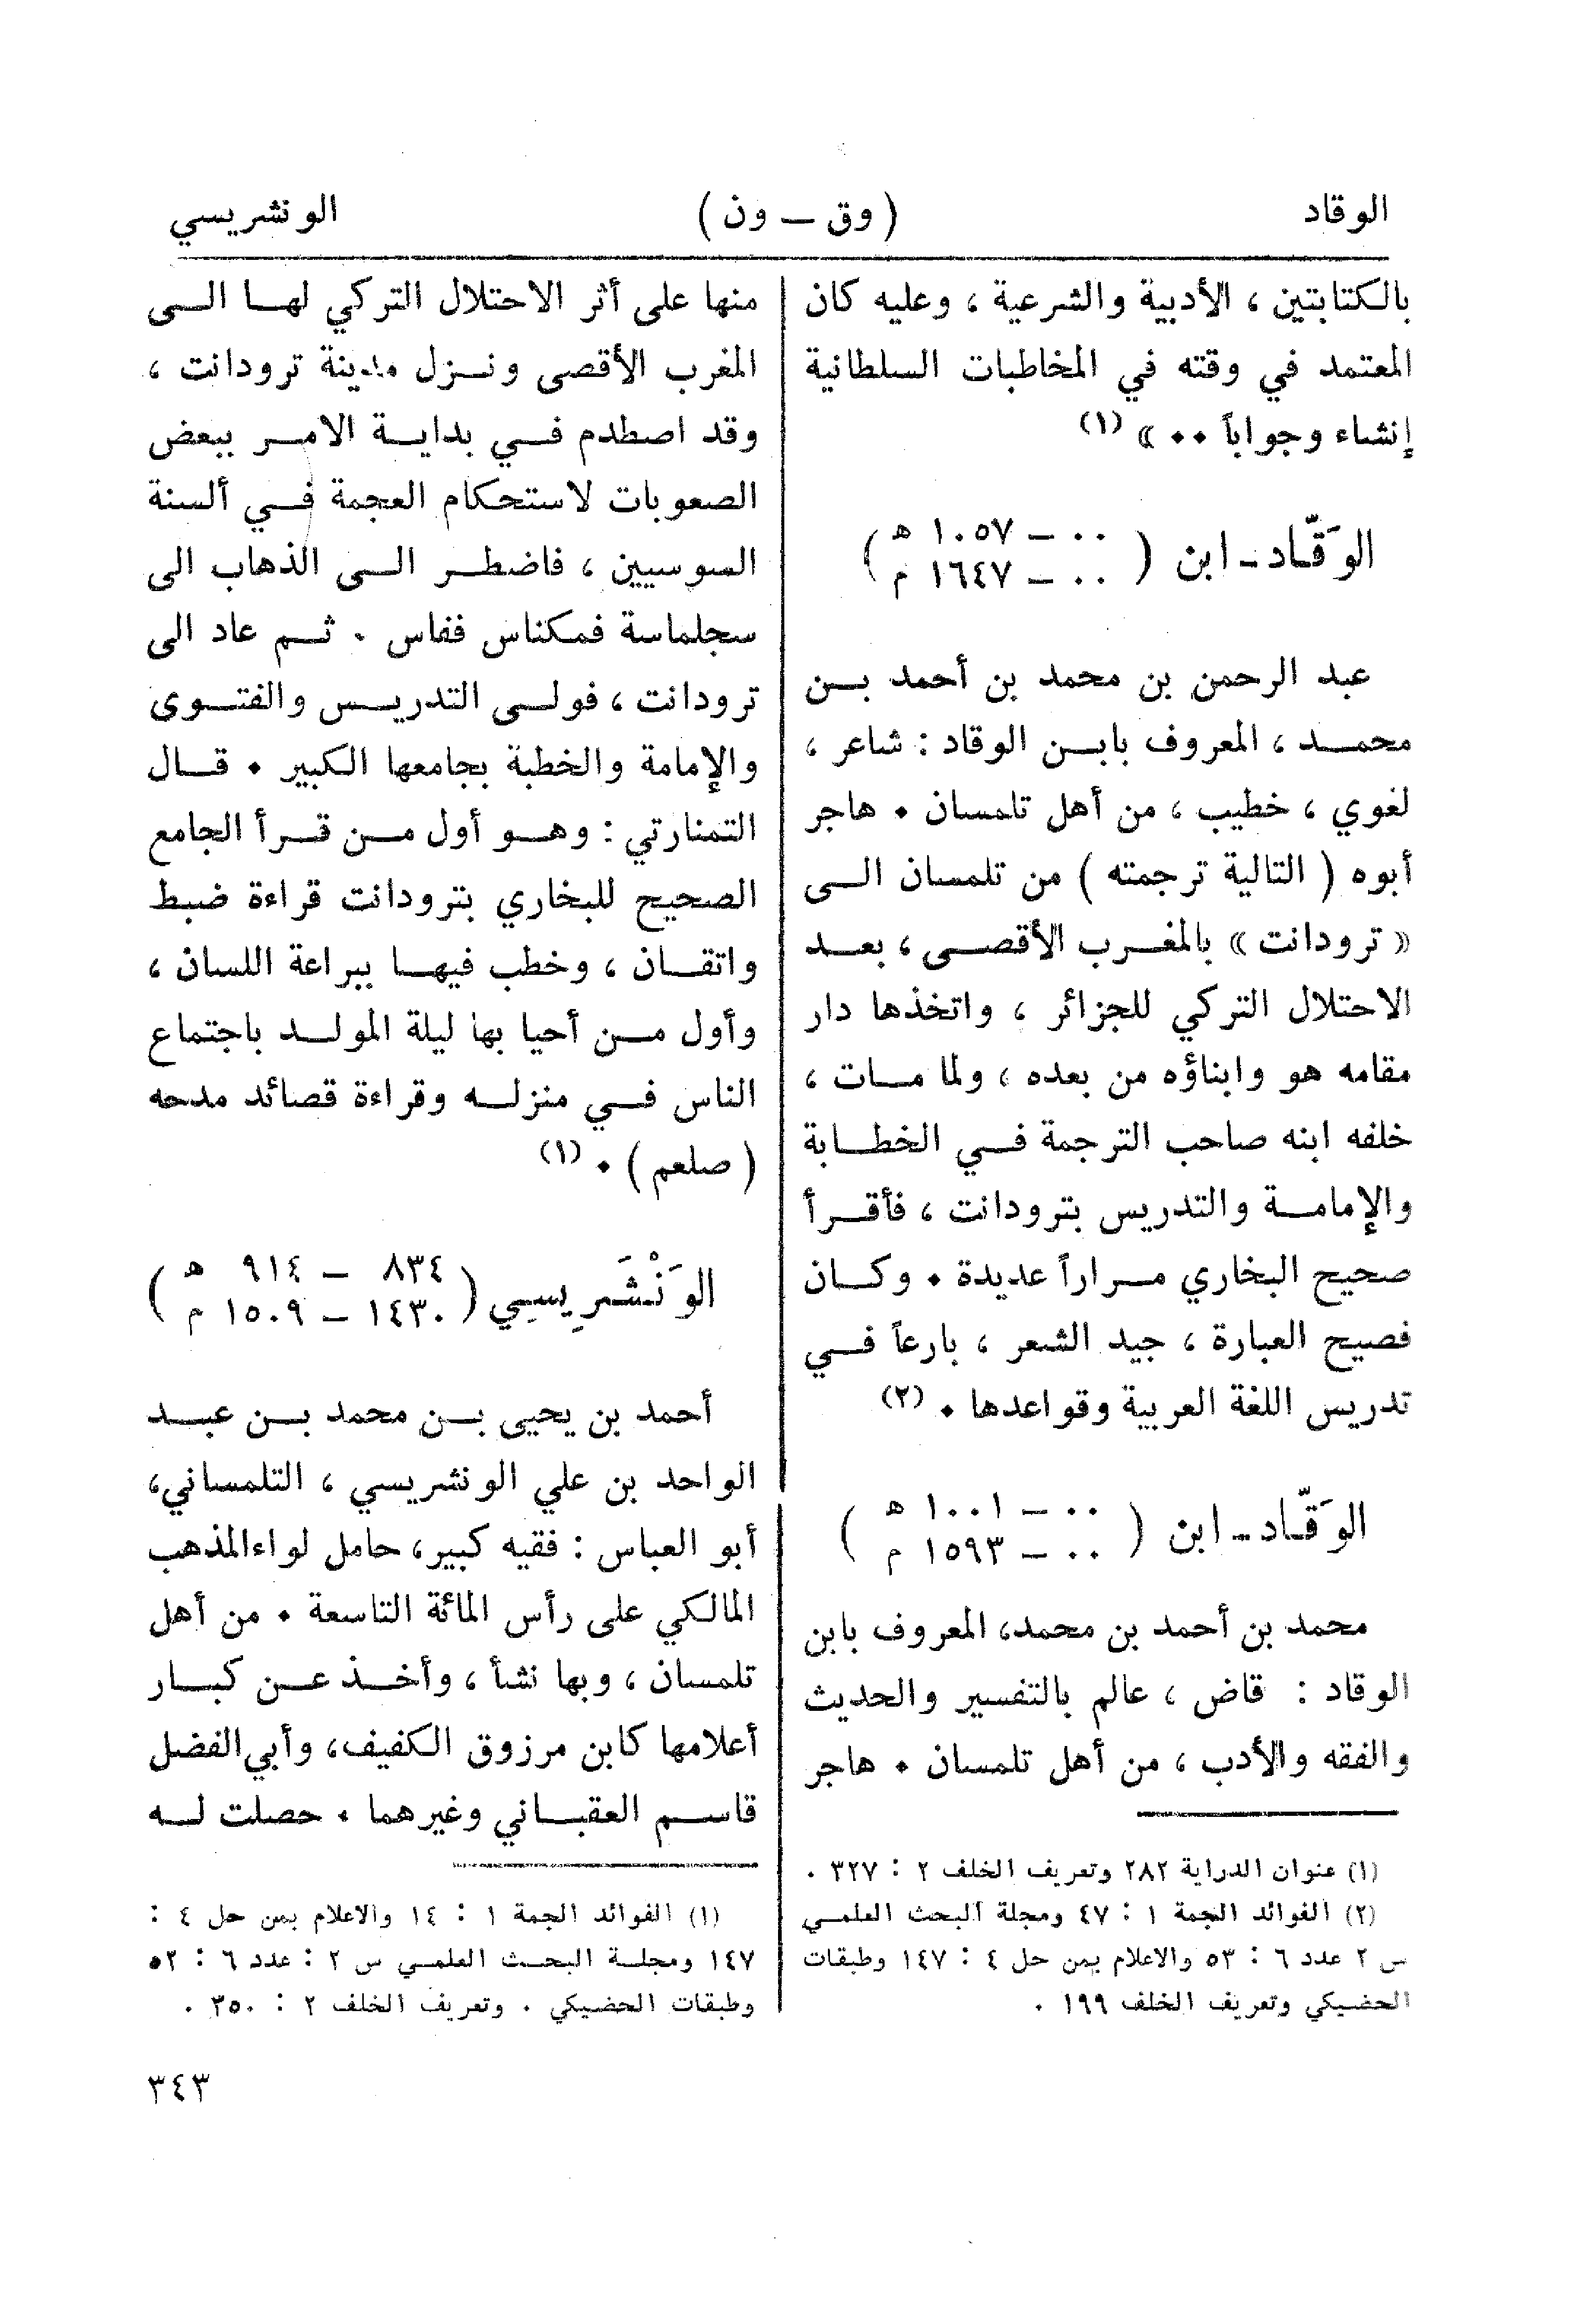 الوقاد (وق — ون) الونشريسي
بالكتابتين ، الأدبية والشرعية ، وعليه كان
المعتمد في وقته في المخاطبات السلطانية
إنشاء وجواباً ٠٠ » (١)
الوَقَّاد - ابن ( ٠٠ — ١٠٥٧ هـ
٠٠ — ١٦٤٧ م )
عبد الرحمن بن محمد بن أحمد بن
محمد ، المعروف بابن الوقاد : شاعر ،
لغوي ، خطيب ، من أهل تلمسان ٠ هاجر
أبوه ( التالية ترجمته ) من تلمسان الى
« ترودانت » بالمغرب الأقصى ، بعد
الاحتلال التركي للجزائر ، واتخذها دار
مقامه هو وابناؤه من بعده ، ولما مات ،
خلفه ابنه صاحب الترجمة في الخطابة
والإمامة والتدريس بترودانت ، فأقرأ
صحيح البخاري مراراً عديدة ٠ وكان
فصيح العبارة ، جيد الشعر ، بارعاً في
تدريس اللغة العربية وقواعدها ٠ (٢)
الوَقَّاد - ابن ( ٠٠ — ١٠٠١ هـ
٠٠ — ١٥٩٣ م )
محمد بن أحمد بن محمد، المعروف بابن
الوقاد : قاض ، عالم بالتفسير والحديث
والفقه والأدب ، من أهل تلمسان ٠ هاجر
(١) عنوان الدراية ٢٨٢ وتعريف الخلف ٢ : ٣٢٧ .
(٢) الفوائد الجمة ١ : ٤٧ ومجلة البحث العلمي
س ٢ عدد ٦ : ٥٣ والاعلام بمن حل ٤ : ١٤٧ وطبقات
الحضيكي وتعريف الخلف ١٩٩ .
منها على أثر الاحتلال التركي لها الى
المغرب الأقصى ونزل مدينة ترودانت ،
وقد اصطدم في بداية الامر ببعض
الصعوبات لاستحكام العجمة في ألسنة
السوسيين ، فاضطر الى الذهاب الى
سجلماسة فمكناس ففاس ٠ ثم عاد الى
ترودانت ، فولى التدريس والفتوى
والإمامة والخطبة بجامعها الكبير ٠ قال
التمنارتي : وهو أول من قرأ الجامع
الصحيح للبخاري بترودانت قراءة ضبط
واتقان ، وخطب فيها ببراعة اللسان ،
وأول من أحيا بها ليلة المولد باجتماع
الناس في منزله وقراءة قصائد مدحه
( صلعم ) ٠ (١)
الوَنْشَرِيسِي ( ٨٣٤ — ٩١٤ هـ
١٤٣٠ — ١٥٠٩ م )
أحمد بن يحيى بن محمد بن عبد
الواحد بن علي الونشريسي ، التلمساني،
أبو العباس : فقيه كبير، حامل لواءالمذهب
المالكي على رأس المائة التاسعة ٠ من أهل
تلمسان ، وبها نشأ ، وأخذ عن كبار
أعلامها كابن مرزوق الكفيف، وأبي الفضل
قاسم العقباني وغيرهما ٠ حصلت له
(١) الفوائد الجمة ١ : ١٤ والاعلام بمن حل ٤ :
١٤٧ ومجلة البحث العلمي س ٢ : عدد ٦ : ٥٢
وطبقات الحضيكي . وتعريف الخلف ٢ : ٣٥٠ .
٣٤٣